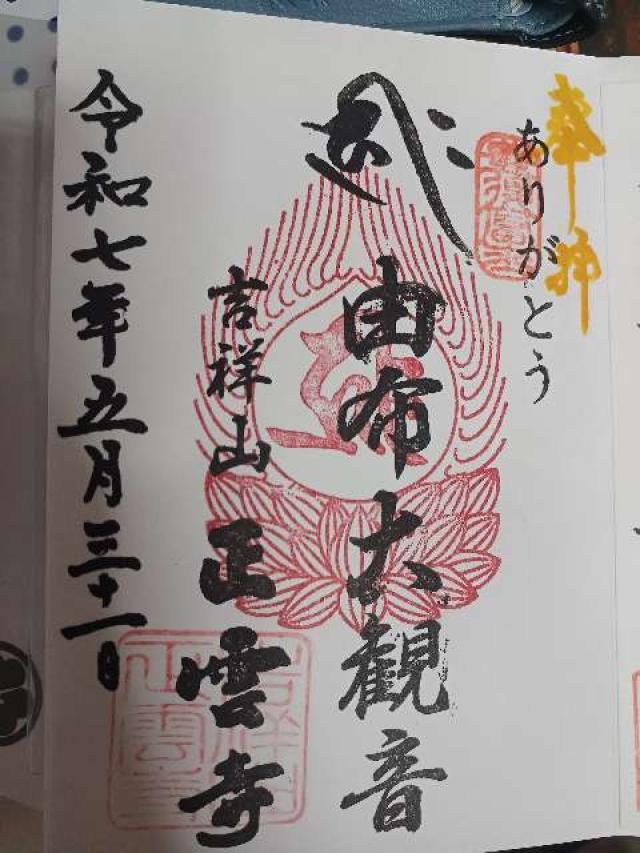 奉拝
ありがとう
由布大観音
吉祥山正雲寺
令和七年五月三十一日